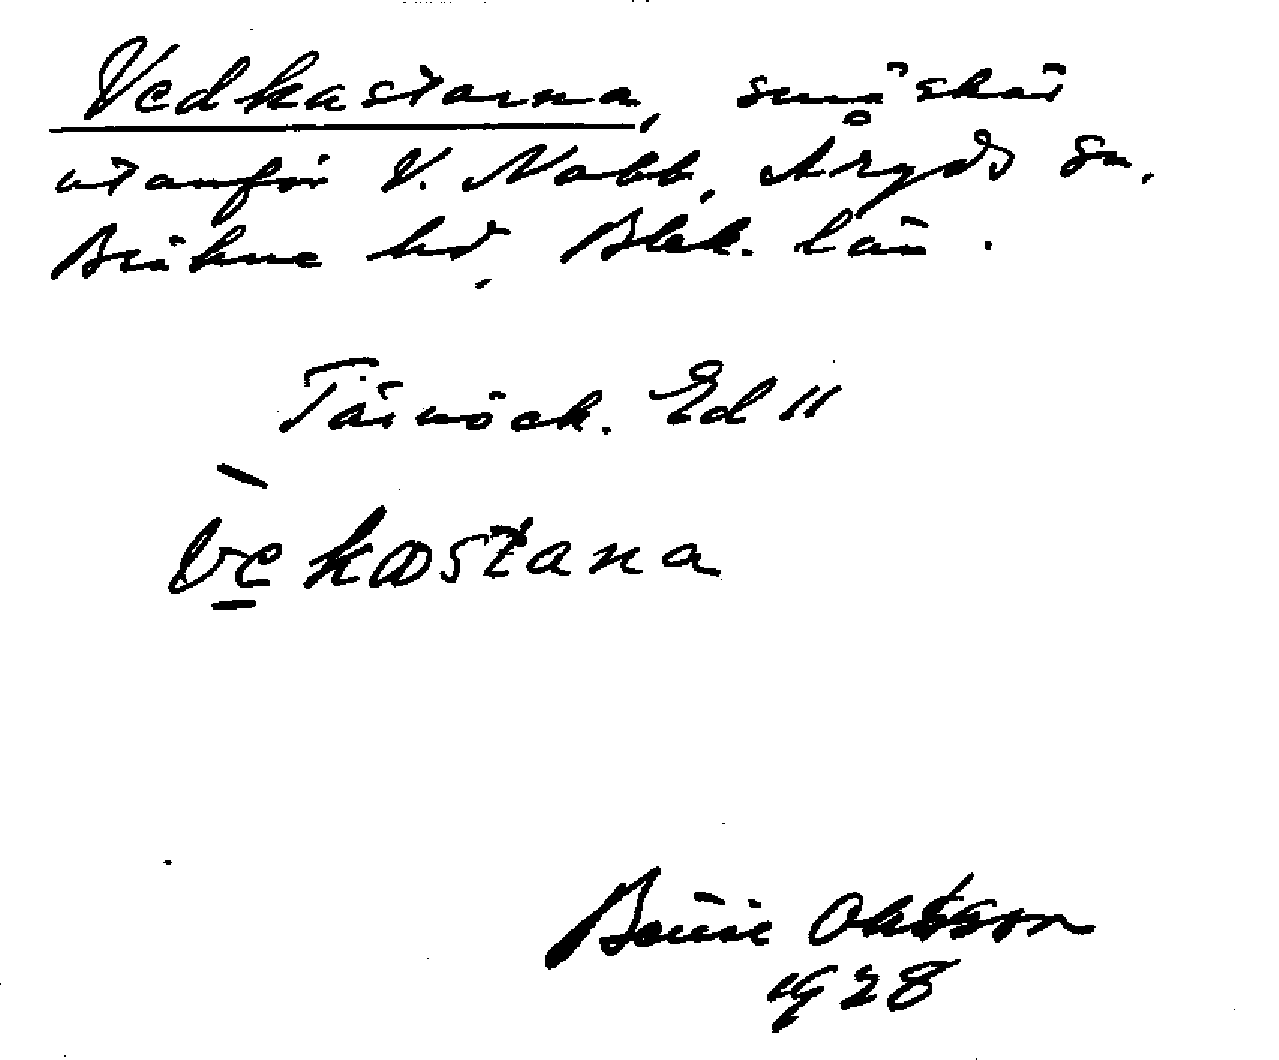 Vedkastarna, småskär
utanför V. Nabb, Åryds sn,
Bräkne hd, Blek. län.
Tärnöck. Ed II
Vekastana
Ohlsson
1928